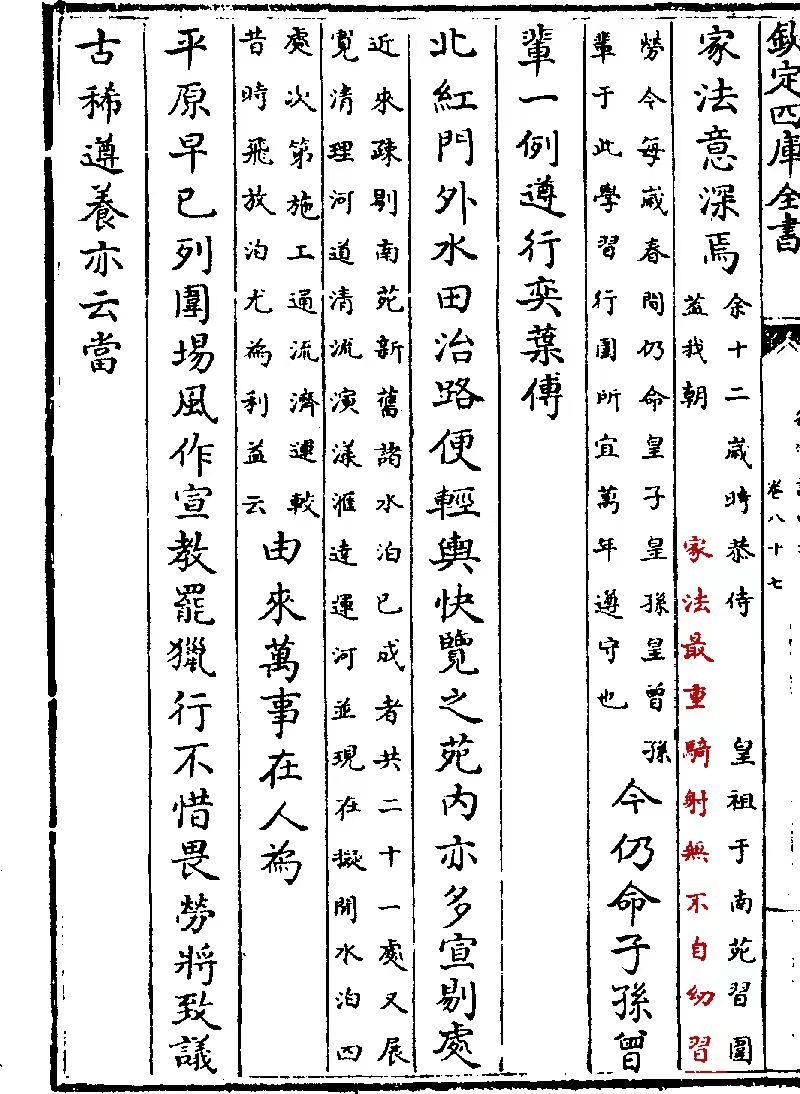 欽定四庫全書
卷八十七
家法意深焉
余十二歲時恭侍 皇祖于南苑習圍
葢我朝 家法最重騎射無不自幼習
勞今每歲春間仍命皇子皇孫皇曾孫
輩于此學習行圍所宜萬年遵守也
今仍命子孫曾
輩一例遵行奕葉傅
北紅門外水田治路便輕輿快覽之苑内亦多宣剔處
近來疎剔南苑新舊諸水泊已成者共二十一處又展
寛清理河道清流演漾滙達運河並現在擬開水泊四
處次第施工通流濟運較
昔時飛放泊尤為利益云
由來萬事在人為
平原早已列圍場風作宣教罷獵行不惜畏勞將致議
古稀遵養亦云當